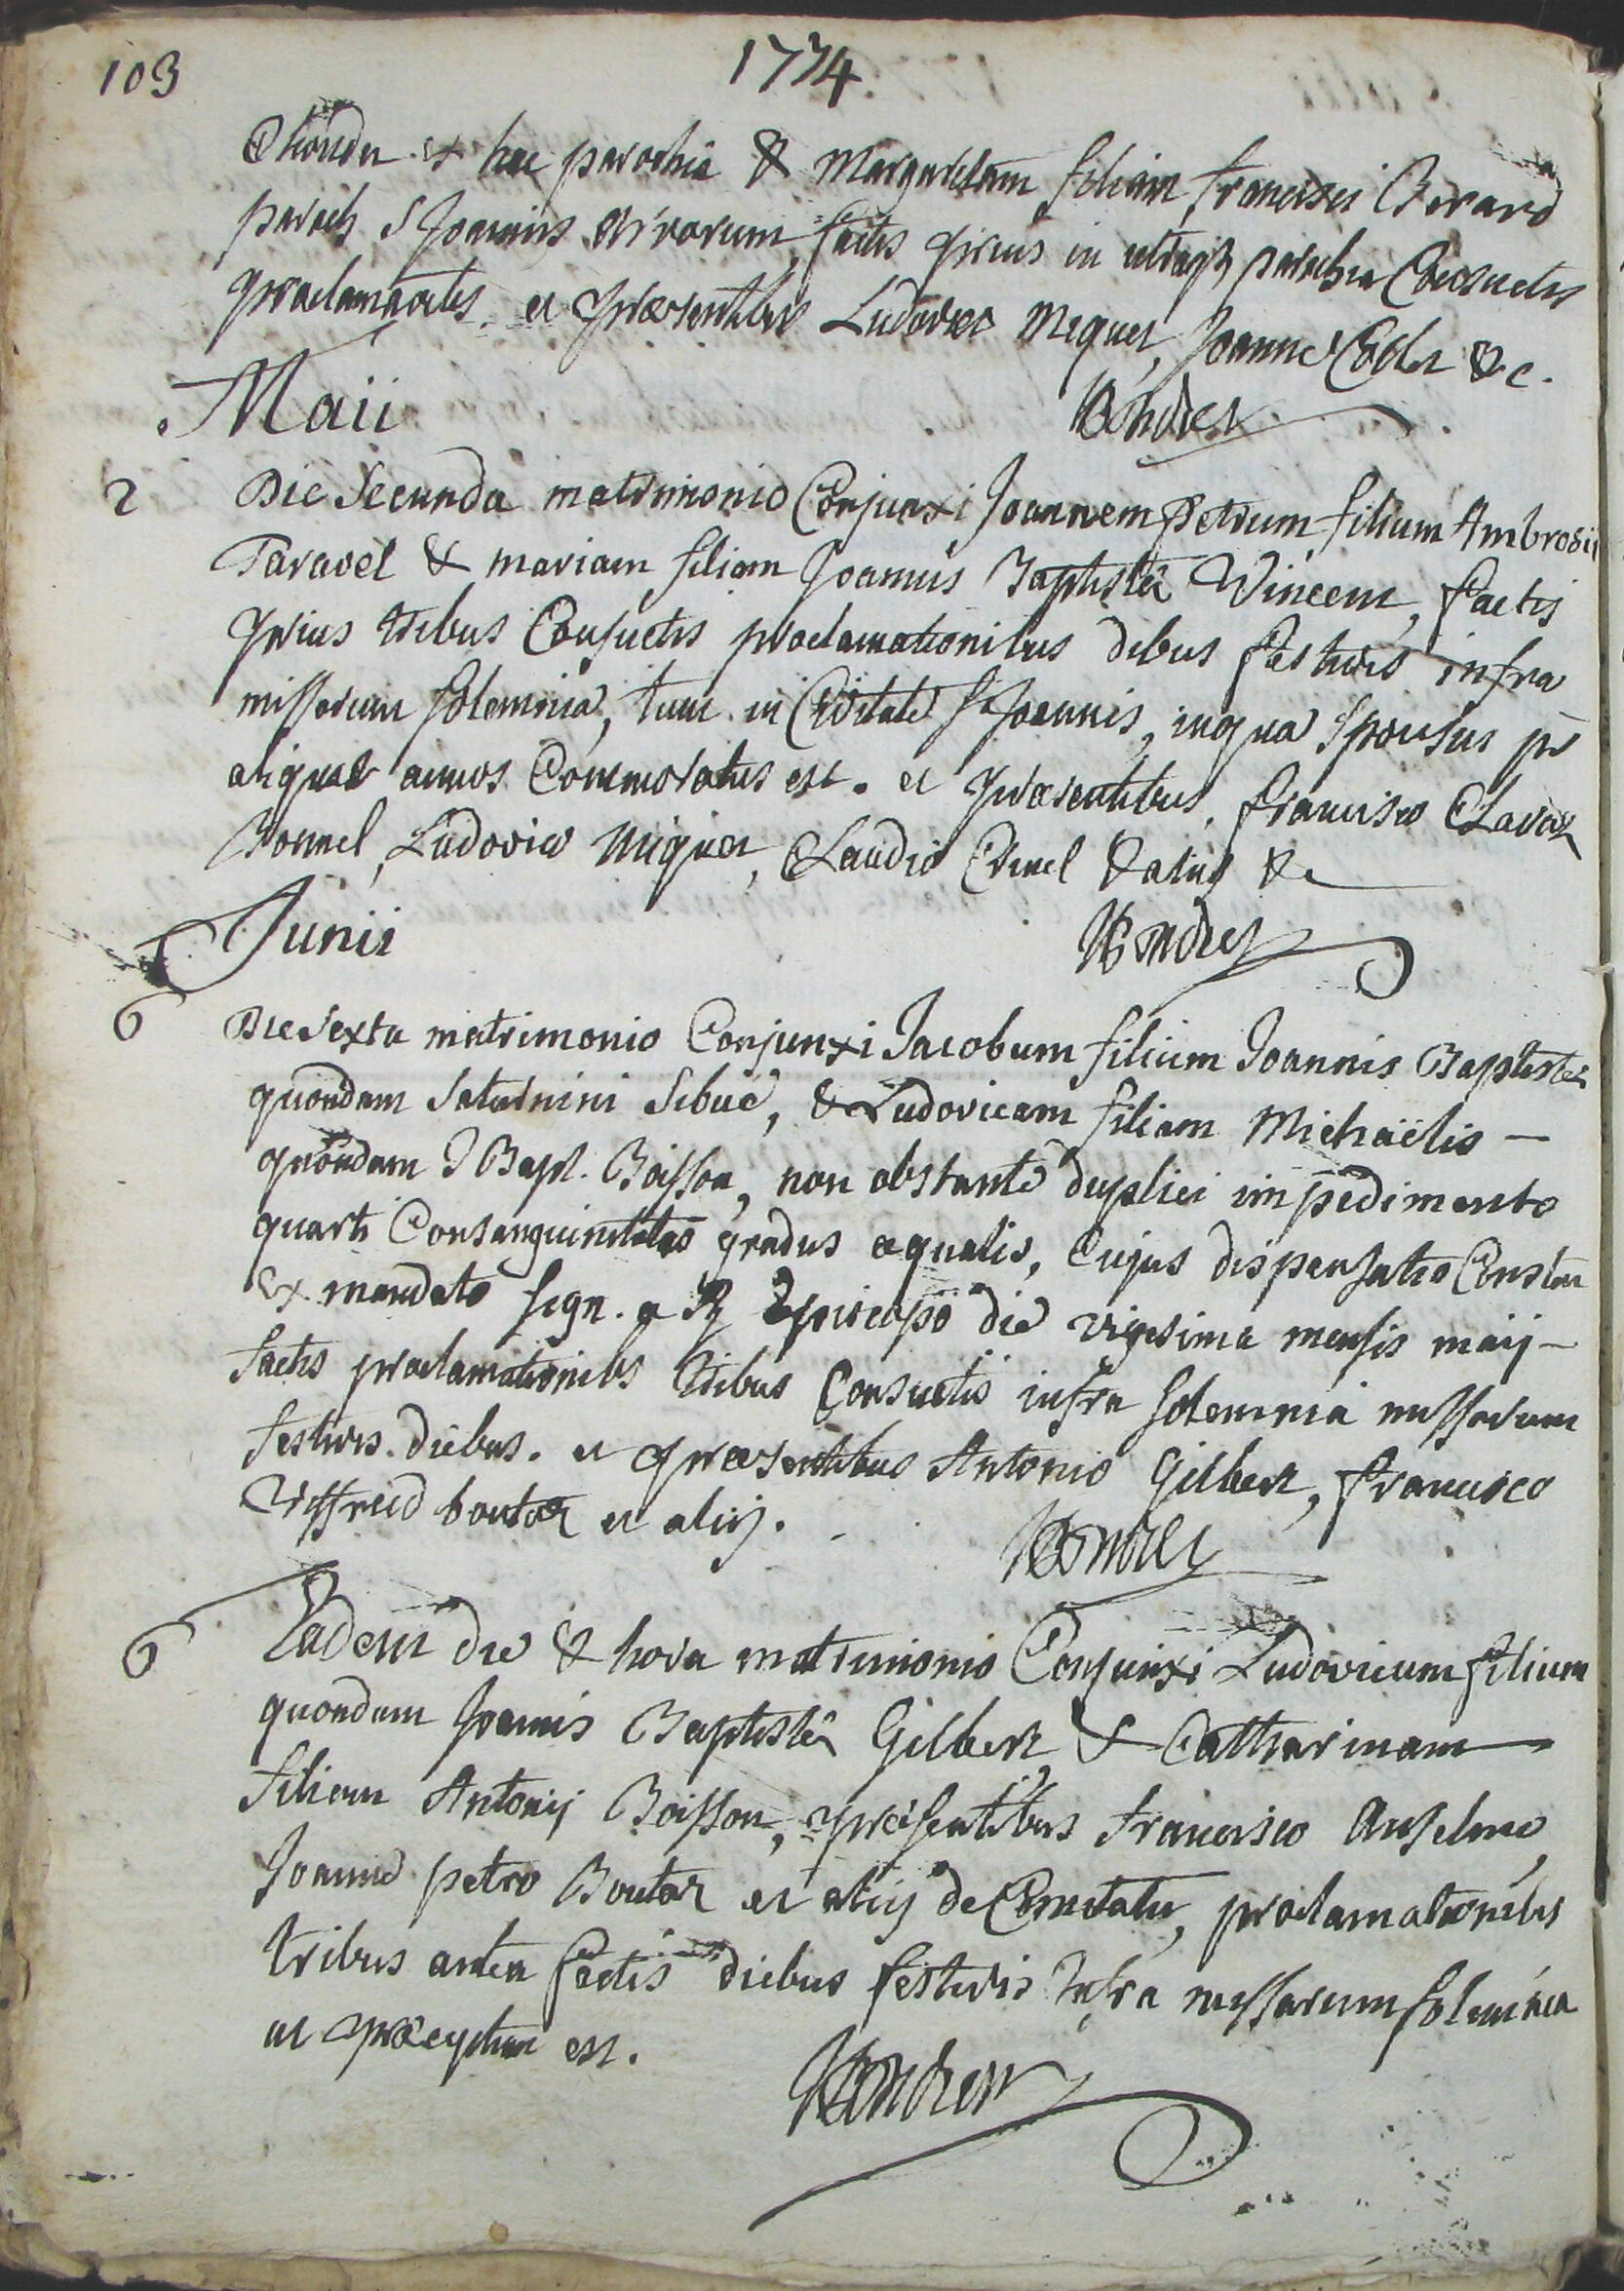 103
1734
ex hac parochia & Margaritam filiam francisci Berard
paroch. S Joannis factis prius in utraq parochia Consuetis
proclamaõibs. et præsentibus Ludovico Miquet, Joanne &c.
Maii
2 Die Secunda matrimonio Conjunxi Joannem Petrum filium Ambrosii
Taravel & mariam filiam Joannis Baptistæ Vincent, factis
prius tribus Consuetis proclamationibus debus festivis infra
missarum solemnia, tum in Civitate S Joannis, in qua Sponsus per
aliquot annos Commoratus est. et præsentibus, francisco Claraz
Bonnel, Ludovico Miquet, Claudio & alijs &c
Junii
6 Die Sexta matrimonio Conjunxi Jacobum filium Joannis Baptistæ
quondam Saturnini Sibué, & Ludovicam filiam Michaëlis —
quondam J Bapt. Boisson, non obstante duplici impedimento
quarti Consanguinitatis gradus æqualis, Cujus dispensatio Constat
ex mandato sign. a R Episcopo die vigesima mensis maij —
factis proclamationibs tribus Consuetis infra solemnia missarum
festivis diebus. et præsentibus Antonio Gilbert, francisco
Viffred boutaz et alijs.
6 Eadem die & hora matrimonio Conjunxi Ludovicum filium
quondam Joannis Baptistæ Gilbert & Catharinam —
filiam Antonij Boisson, præsentibus francisco Anselme,
Joanne petro Boutaz et alijs de Comitatu, proclamationibs
tribus antea factis diebus festivis Infra missarum solemnia
ut præceptum est.